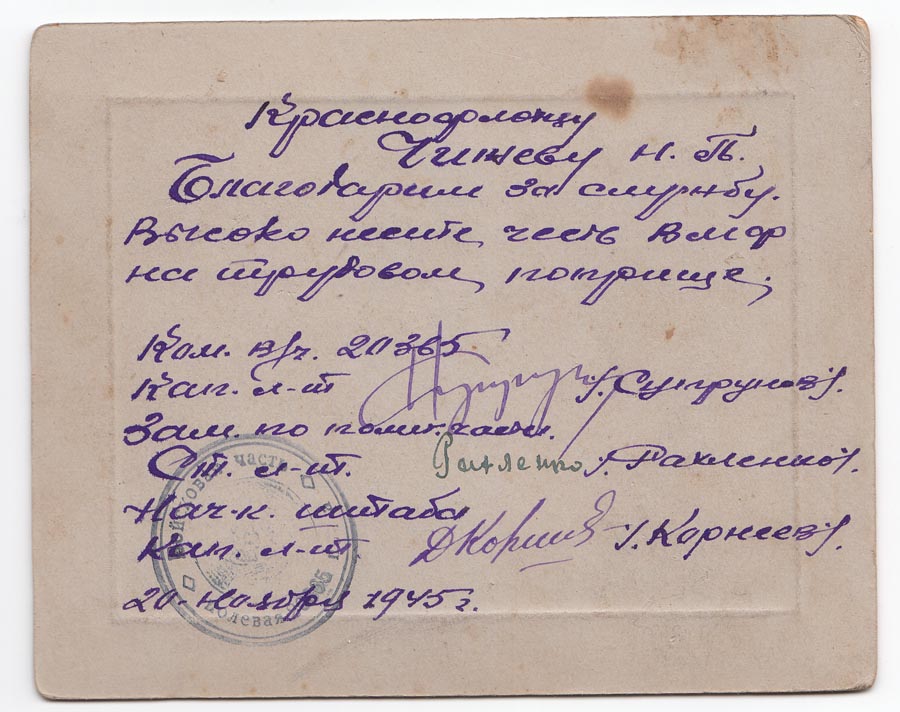 Краснофлотцу
Чижеву Н. П.
Благодарим за службу.
Высоко несите честь ВМФ
на трудовом поприще.
Ком. в/ч. 20365
Кап. л-т /Супрунов/.
Зам. по полит. части.
Ст. л-т. Рахленко /Рахленко/.
Нач-к. штаба
Кап. л-т ДКорнеев /Корнеев/.
20 ноября 1945 г.
часть
Полевая